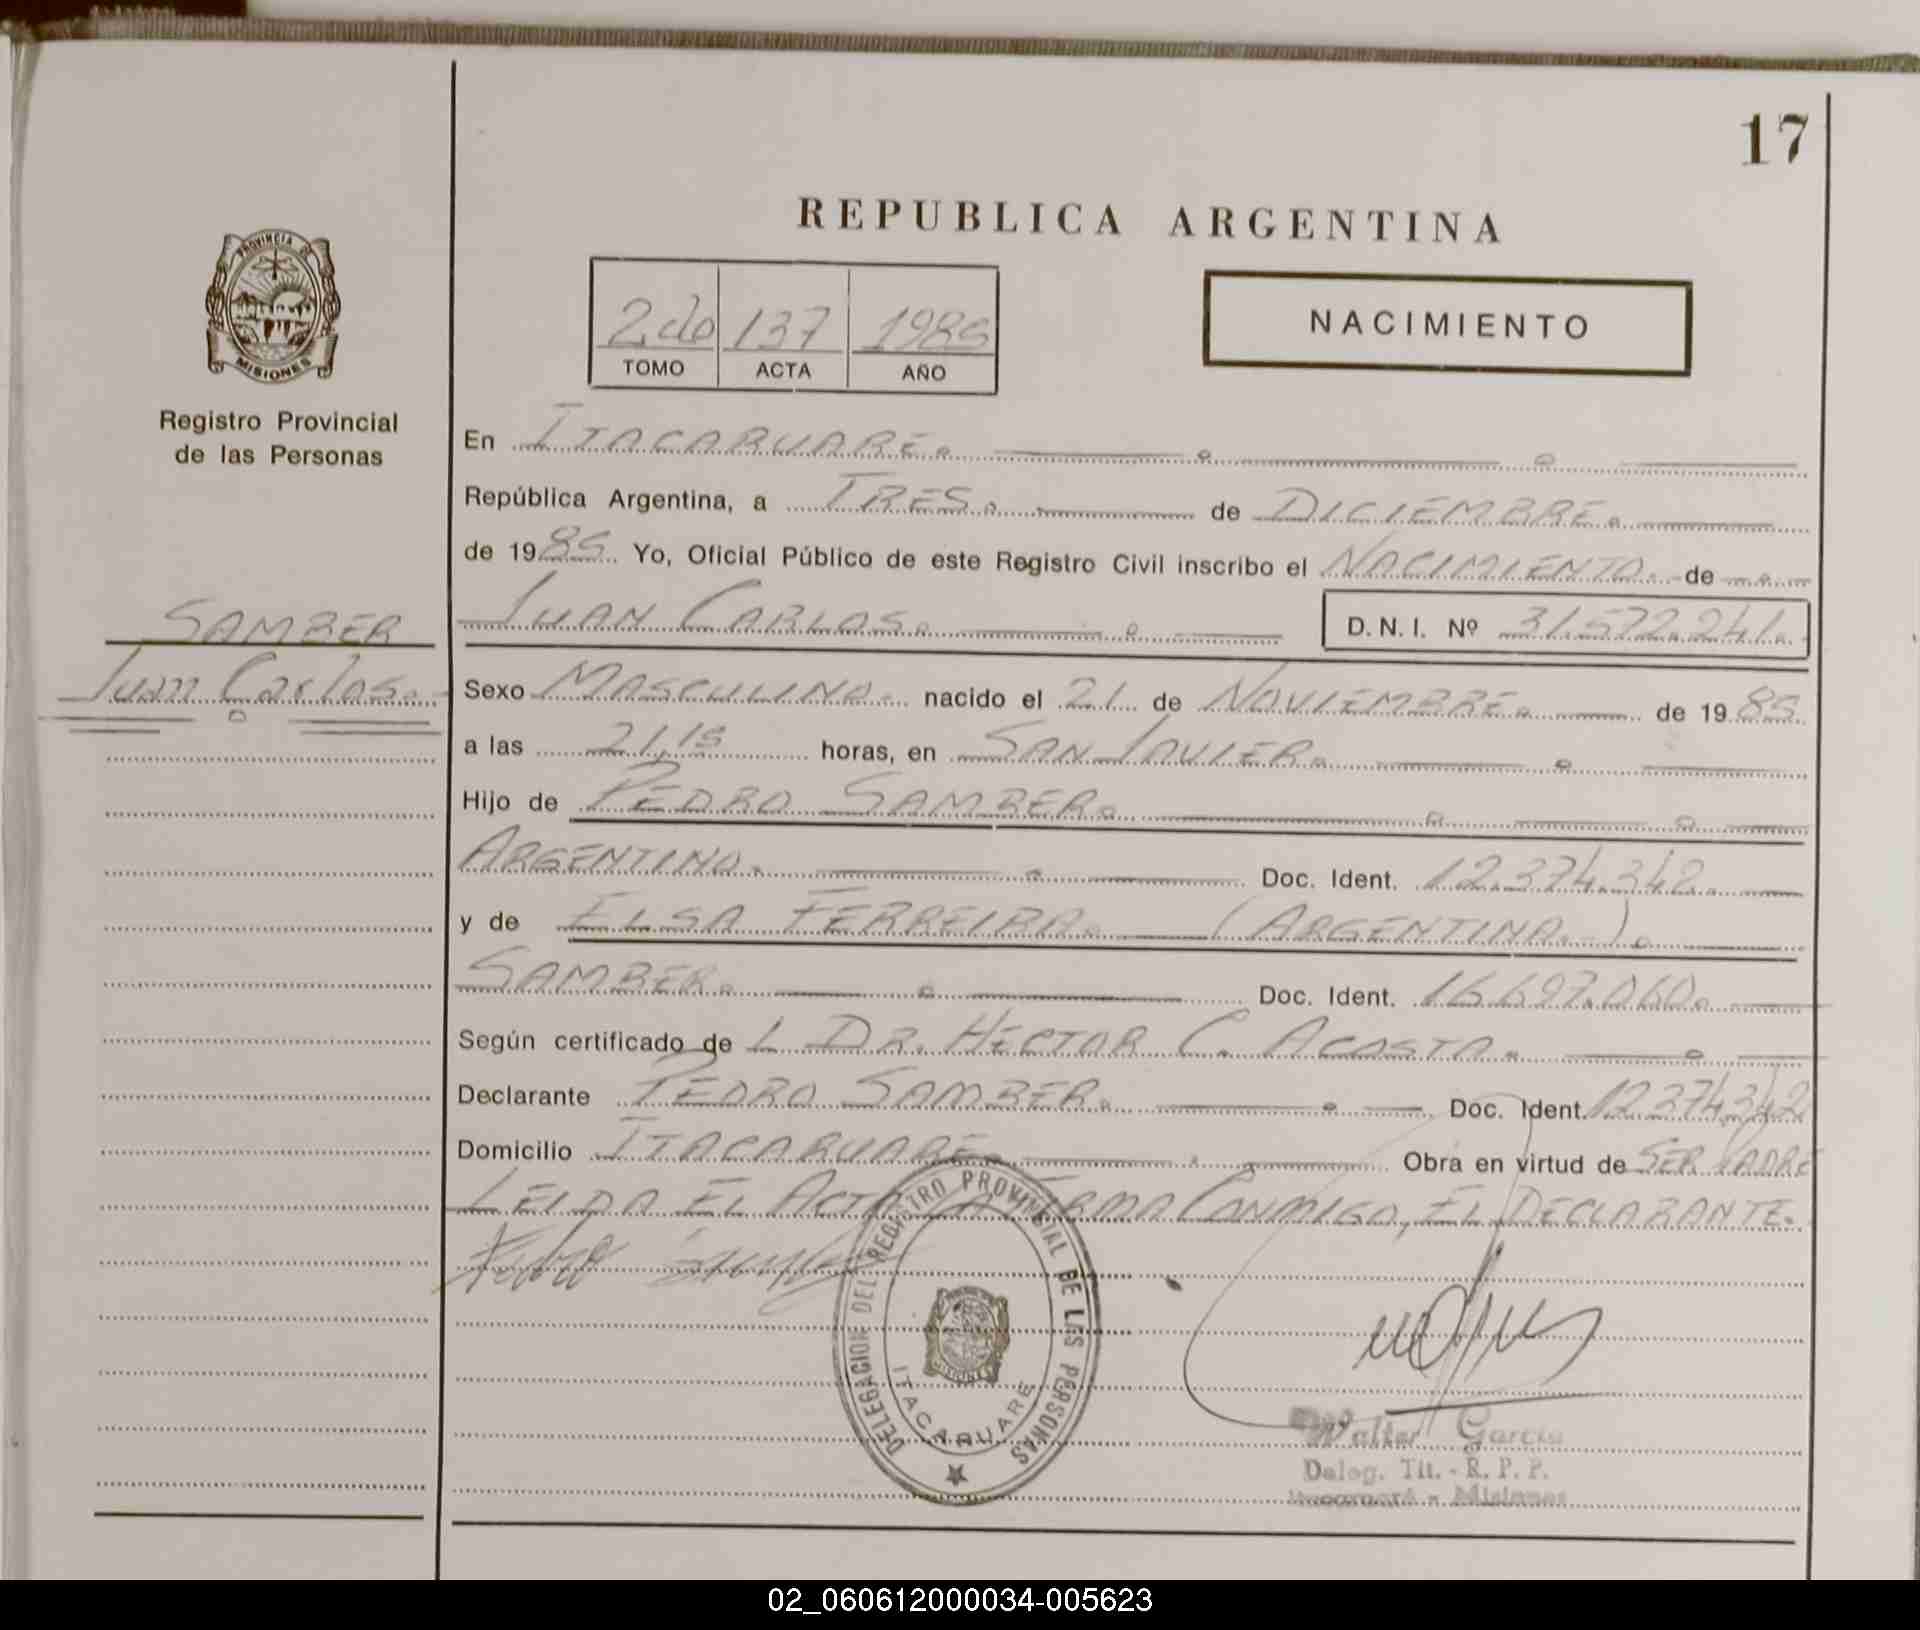 17
REPUBLICA ARGENTINA
PROVINCIA DE
MISIONES
2do 137 1985
TOMO ACTA AÑO
NACIMIENTO
Registro Provincial
de las Personas
En ITACARUARE.
República Argentina, a TRES. de DICIEMBRE.
de 1985 Yo, Oficial Público de este Registro Civil inscribo el NACIMIENTO. de
SAMBER
Juan Carlos.
JUAN CARLOS. D.N.I. Nº 31.572.241.
Sexo MASCULINO. nacido el 21 de NOVIEMBRE. de 1985
a las 21,15 horas, en SAN JAVIER.
Hijo de PEDRO SAMBER.
ARGENTINO. Doc. Ident. 12.374.342.
y de ELSA FERREIRA. (ARGENTINA.-).
SAMBER. Doc. Ident. 16.697.060.
Según certificado de L DR. HECTOR C. ACOSTA.
Declarante PEDRO SAMBER. Doc. Ident. 12374342
Domicilio ITACARUARE. Obra en virtud de SER PADRE
LEIDA EL ACTA LA FIRMA CONMIGO, EL DECLARANTE.
DELEGACION DEL REGISTRO PROVINCIAL DE LAS PERSONAS
MISIONES
ITACARUARE
Walter Garcia
Deleg. Tit. - R. P. P.
- Misiones
02_060612000034-005623